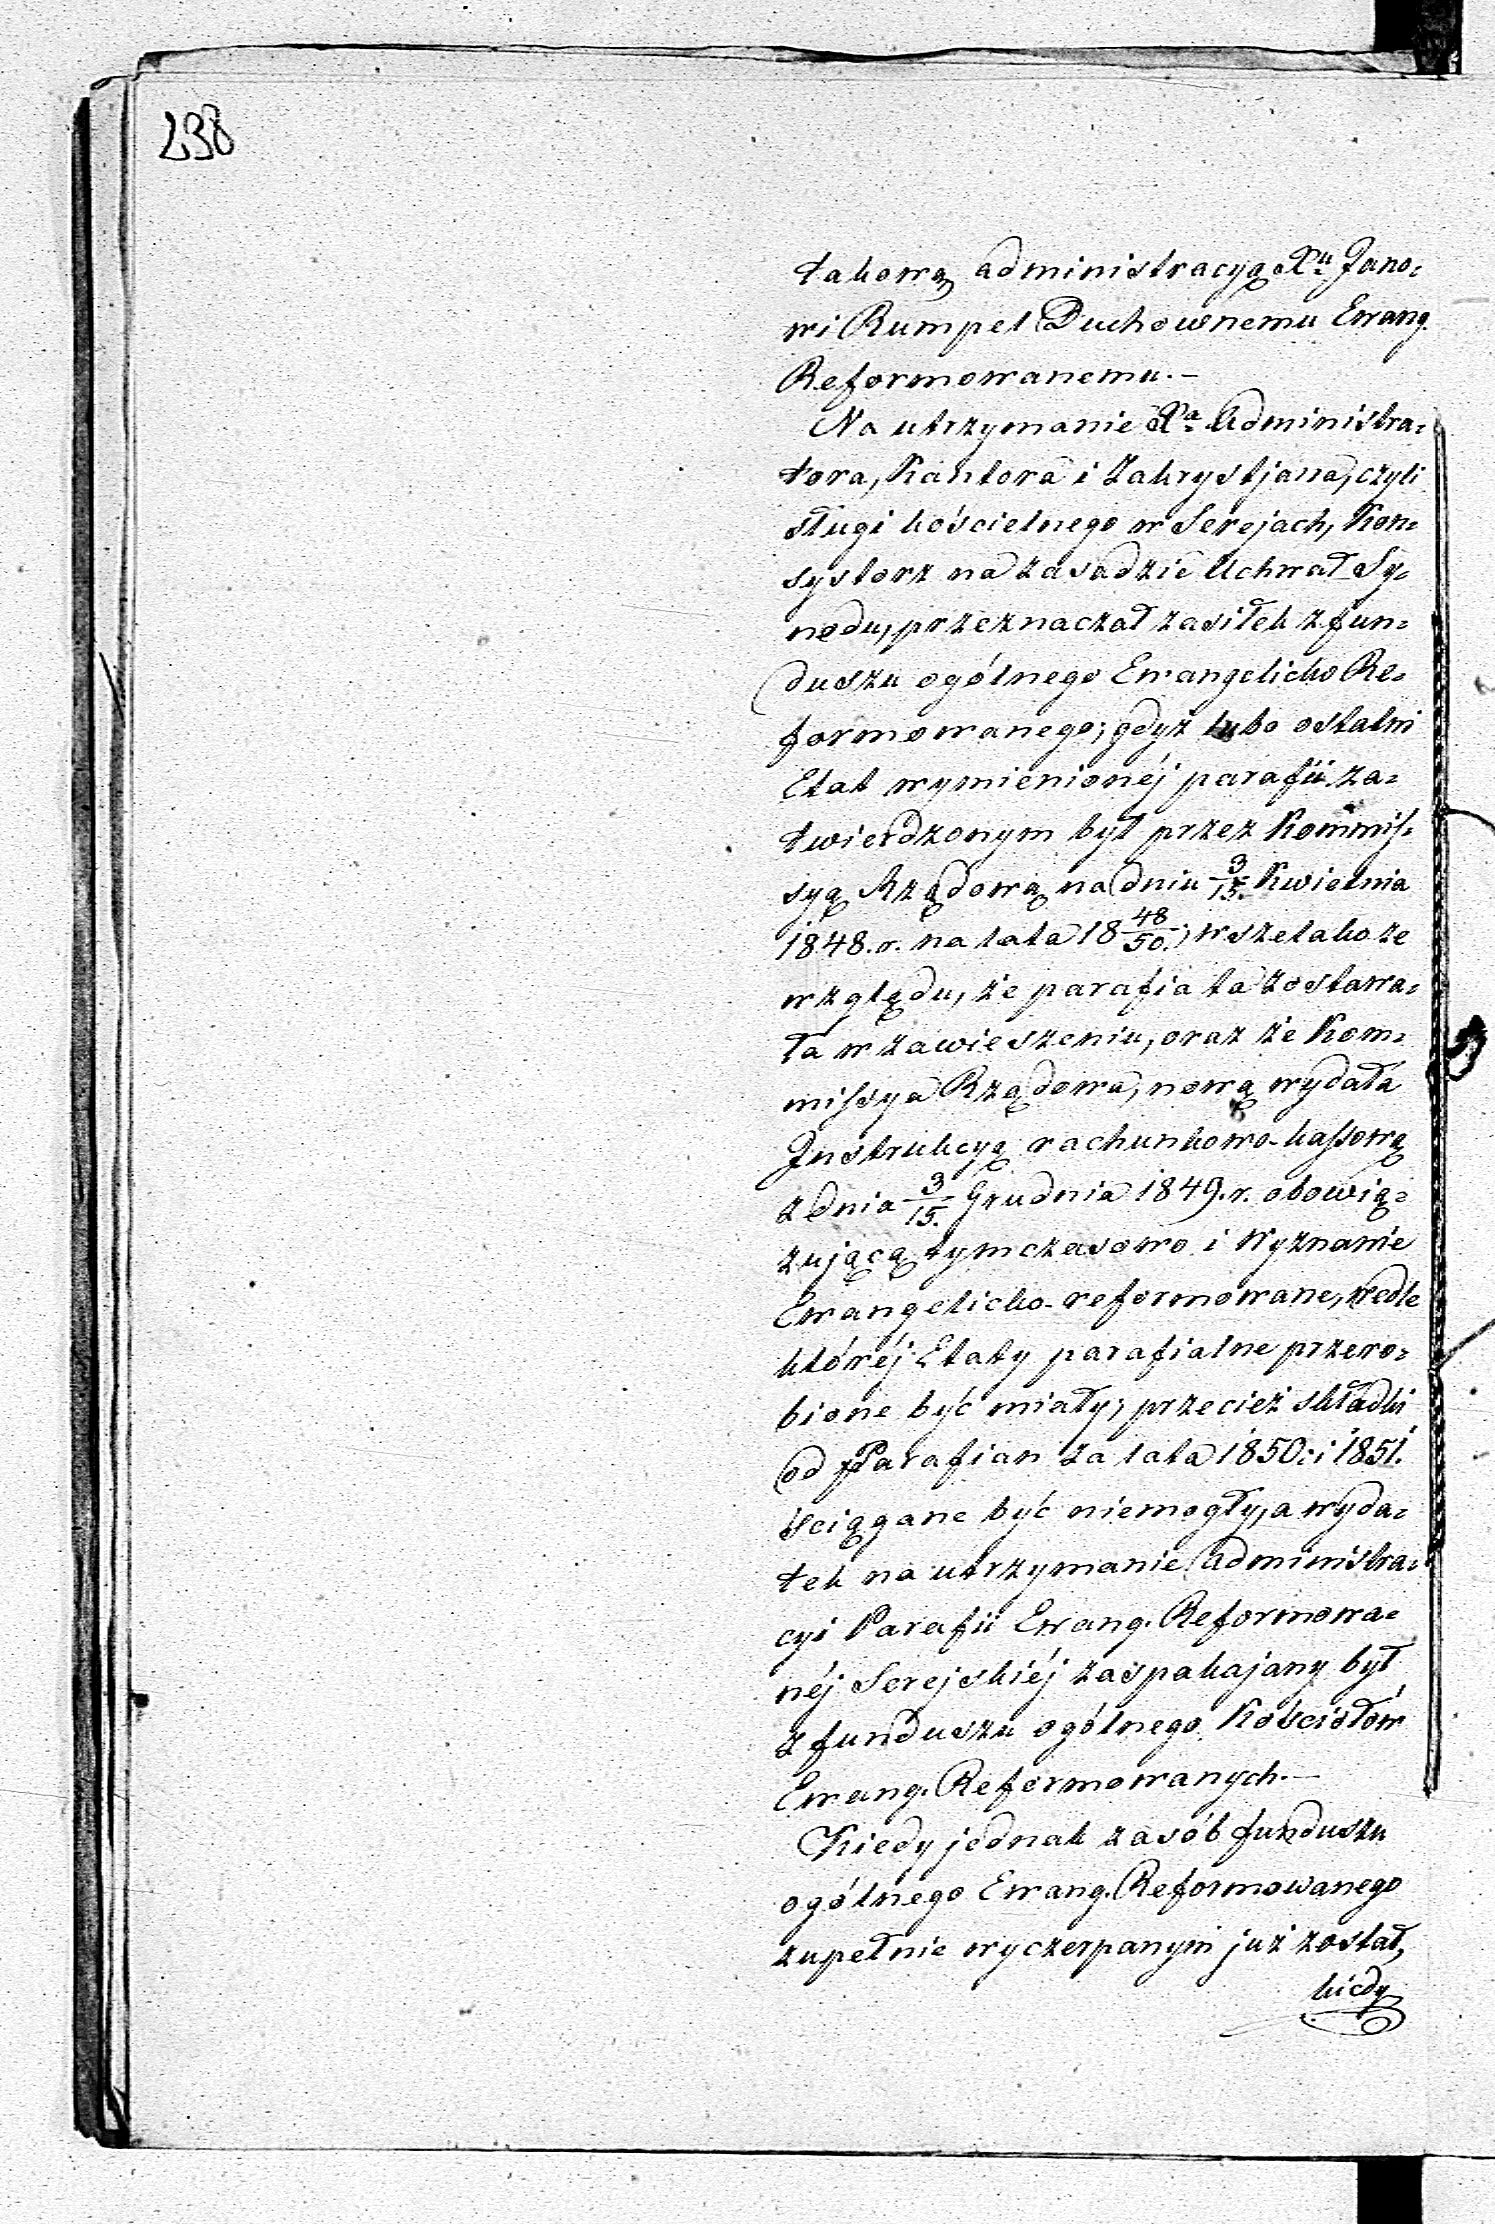 238
takową administracyą Xu Jano-
wi Rumpel Duchownemu Ewang.
Reformowanemu.—
Na utrzymanie Xa Administra-
tora, Kantora i Zakrystjana, czyli
sługi kościelnego w Serejach, Kon-
systorz na zasadzie Uchwał Sy-
nodu, przeznaczał zasiłek z fun-
duszu ogólnego Ewangelicko Re-
formowanego; gdyż lubo ostatni
Etat wymienionéj parafii za-
twierdzonym był przez Kommis-
syą Rządową na dniu 3/15. Kwietnia
1848. r. na lata 18 48/50.; wszelako ze
względu, że parafia ta zostawa-
ła w zawieszeniu, oraz że Kom-
missya Rządowa, nową wydała
Instrukcyą rachunkowo-kassową
z dnia 3/15. Grudnia 1849. r. obowią-
zującą tymczasowo i Wyznanie
Ewangelicko-reformowane, wedle
któréj Etaty parafialne przero-
bione być miały; przecież składki
od Parafian za lata 1850. i 1851.
ściągane być niemogły, a wyda-
tek na utrzymanie Administra-
cyi Parafii Ewang. Reformowa-
néj Serejskiéj zaspakajany był
z funduszu ogólnego Kościołów
Ewang. Reformowanych.—
Kiedy jednak zasób funduszu
ogólnego Ewang. Reformowanego
zupełnie wyczerpanym już został,
kiedy